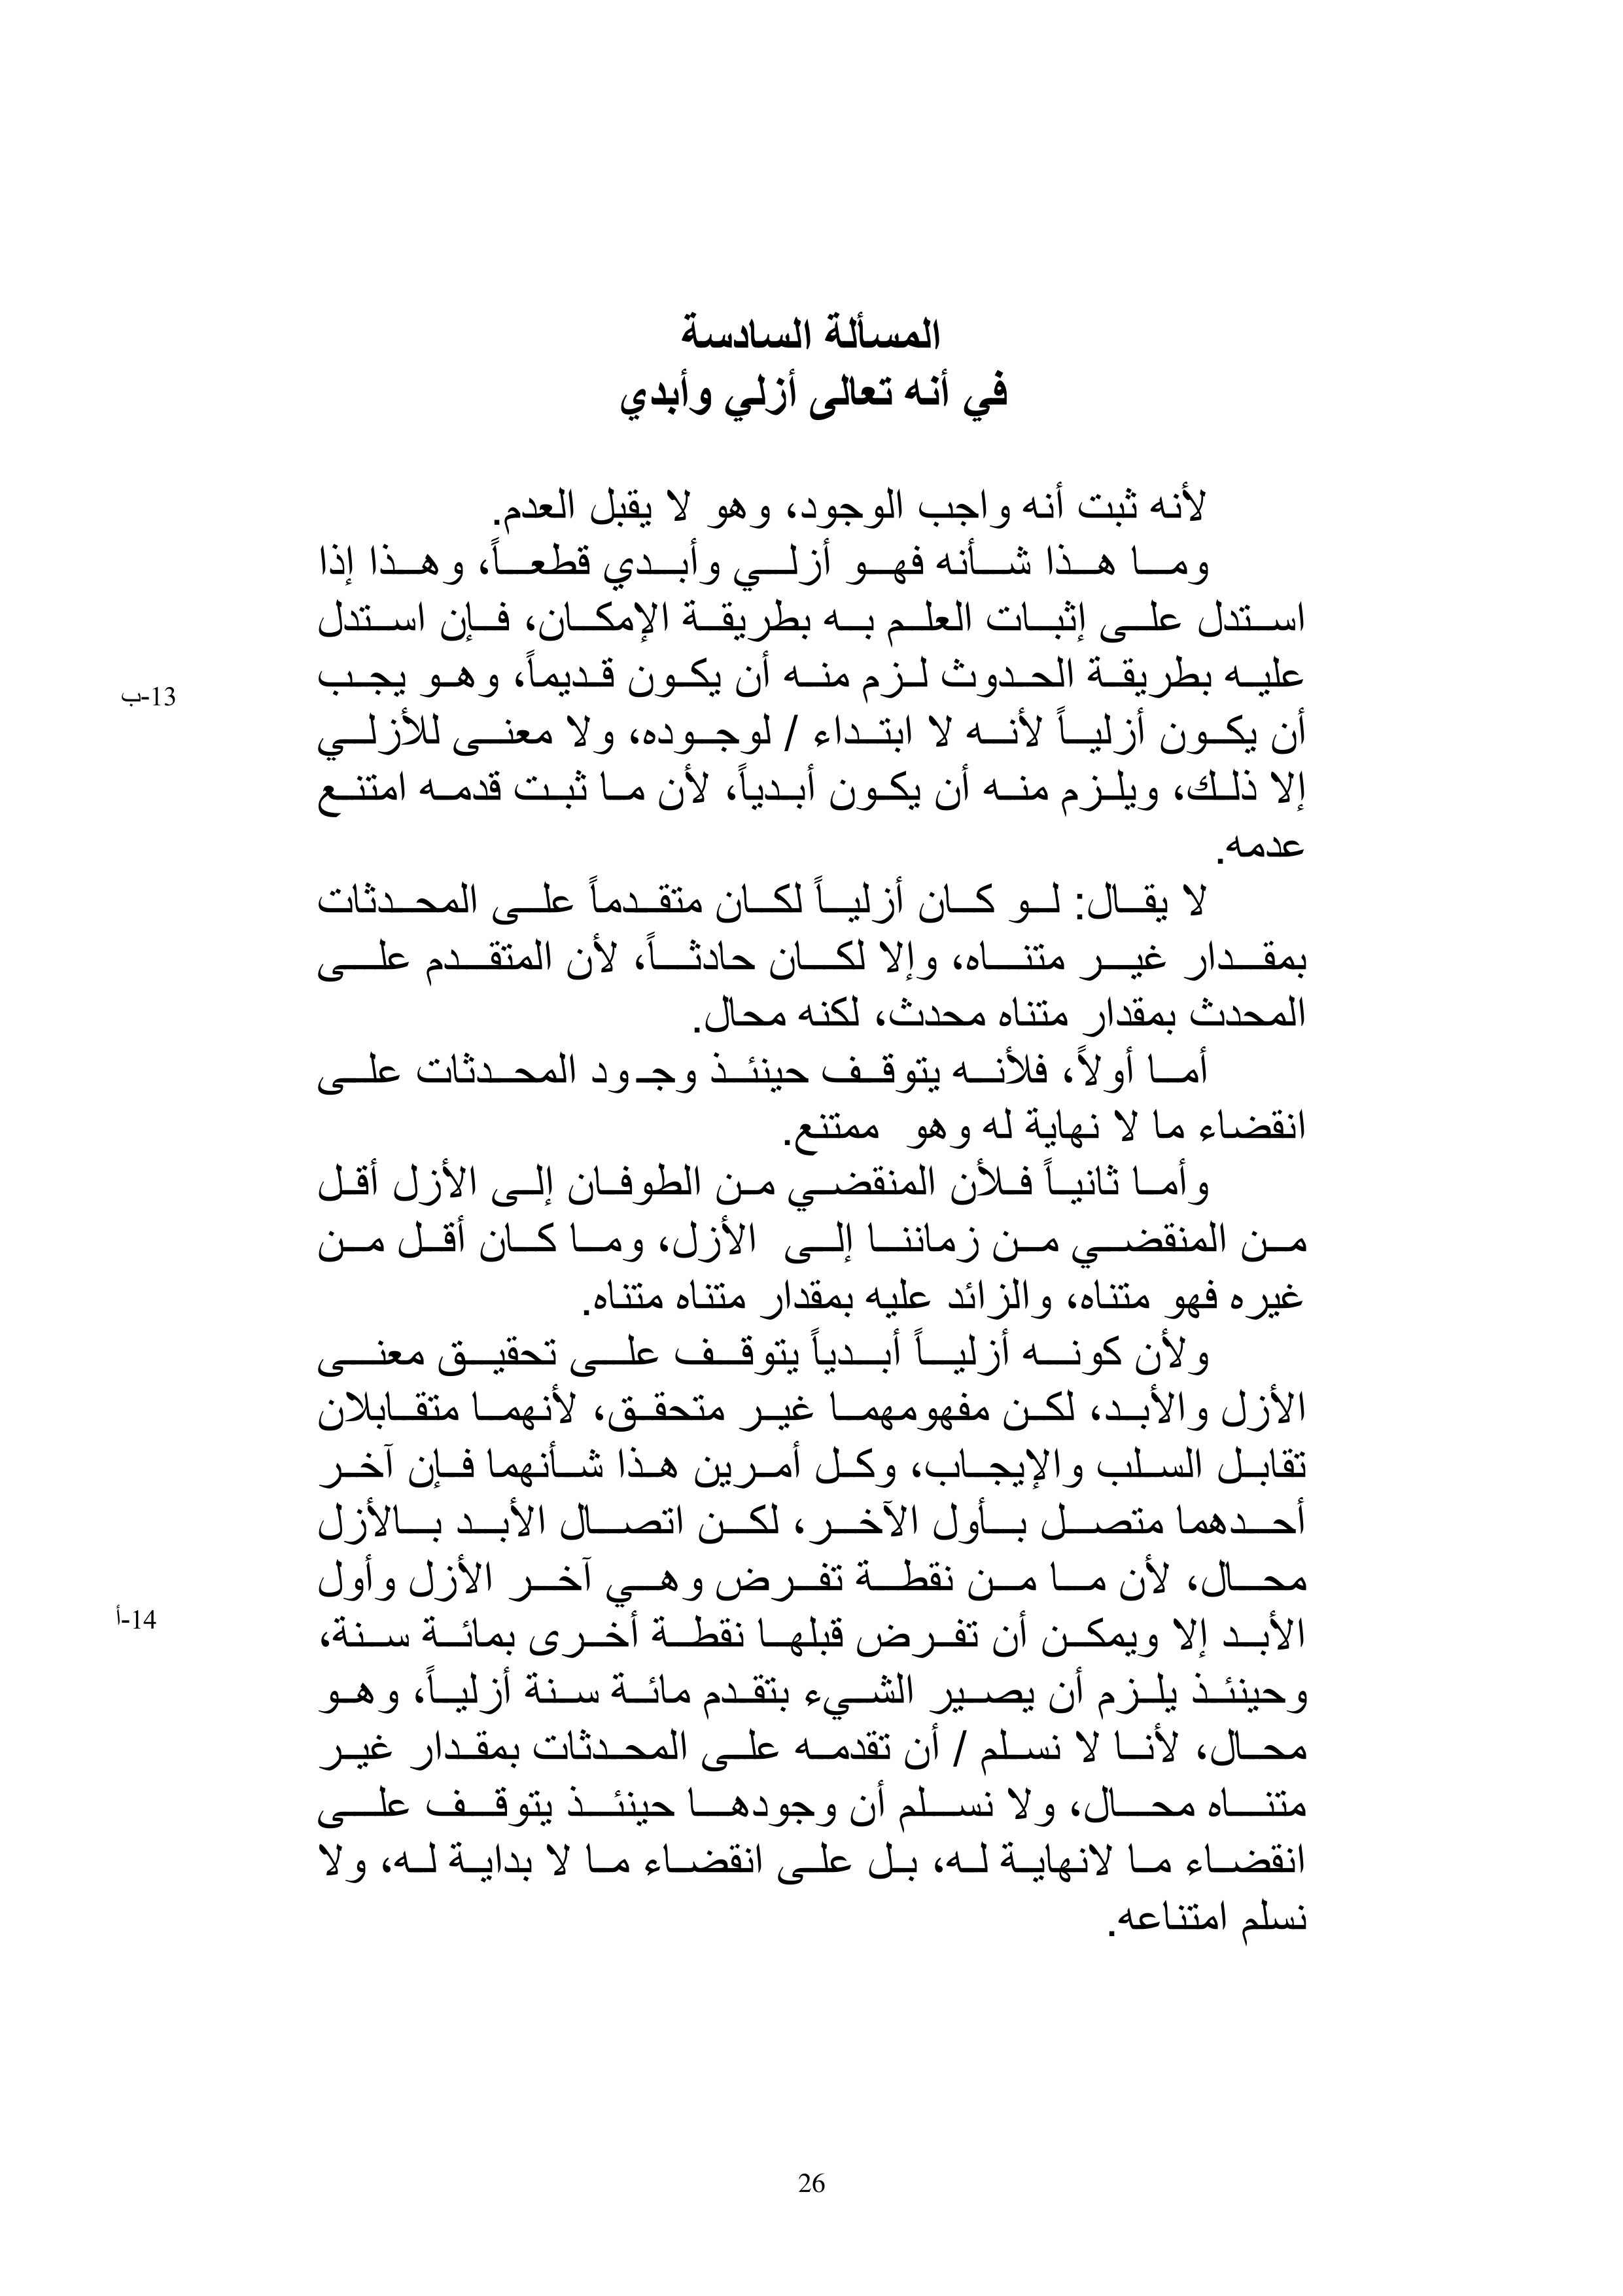 المسألة السادسة
في أنه تعالى أزلي وأبدي
لأنه ثبت أنه واجب الوجود، وهو لا يقبل العدم.
وما هذا شأنه فهو أزلي وأبدي قطعاً، وهذا إذا
استدل على إثبات العلم به بطريقة الإمكان، فإن استدل
عليه بطريقة الحدوث لزم منه أن يكون قديماً، وهو يجب
13-ب
أن يكون أزلياً لأنه لا ابتداء / لوجوده، ولا معنى للأزلي
إلا ذلك، ويلزم منه أن يكون أبدياً، لأن ما ثبت قدمه امتنع
عدمه.
لا يقال: لو كان أزلياً لكان متقدماً على المحدثات
بمقدار غير متناه، وإلا لكان حادثاً، لأن المتقدم على
المحدث بمقدار متناه محدث، لكنه محال.
أما أولاً، فلأنه يتوقف حينئذ وجود المحدثات على
انقضاء ما لا نهاية له وهو ممتنع.
وأما ثانياً فلأن المنقضي من الطوفان إلى الأزل أقل
من المنقضي من زماننا إلى الأزل، وما كان أقل من
غيره فهو متناه، والزائد عليه بمقدار متناه متناه.
ولأن كونه أزلياً أبدياً يتوقف على تحقيق معنى
الأزل والأبد، لكن مفهومهما غير متحقق، لأنهما متقابلان
تقابل السلب والإيجاب، وكل أمرين هذا شأنهما فإن آخر
أحدهما متصل بأول الآخر، لكن اتصال الأبد بالأزل
محال، لأن ما من نقطة تفرض وهي آخر الأزل وأول
14-أ
الأبد إلا ويمكن أن تفرض قبلها نقطة أخرى بمائة سنة،
وحينئذ يلزم أن يصير الشيء بتقدم مائة سنة أزلياً، وهو
محال، لأنا لا نسلم / أن تقدمه على المحدثات بمقدار غير
متناه محال، ولا نسلم أن وجودها حينئذ يتوقف على
انقضاء ما لانهاية له، بل على انقضاء ما لا بداية له، ولا
نسلم امتناعه.
26